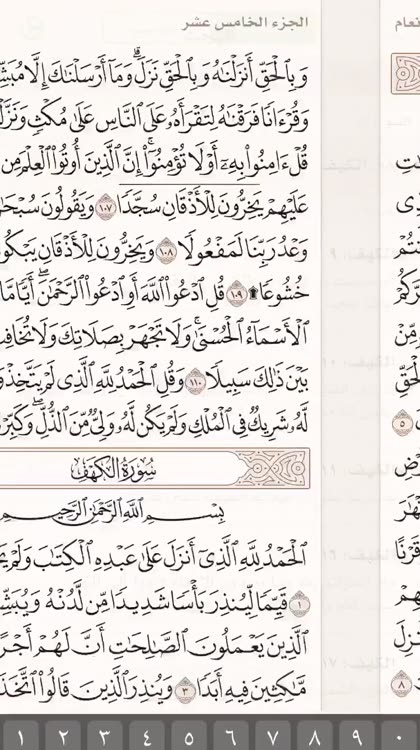 الجزء الخامس عشر
نعام
وَبِالْحَقِّ أَنزَلْنَاهُ وَبِالْحَقِّ نَزَلَ ۗ وَمَا أَرْسَلْنَاكَ إِلَّا مُبَشِّ
وَقُرْءَانًا فَرَقْنَاهُ لِتَقْرَأَهُ عَلَى النَّاسِ عَلَىٰ مُكْثٍ وَنَزَّلْ
قُلْ ءَامِنُوا بِهِ أَوْ لَا تُؤْمِنُوا ۚ إِنَّ الَّذِينَ أُوتُوا الْعِلْمَ مِن
عَلَيْهِمْ يَخِرُّونَ لِلْأَذْقَانِ سُجَّدًا ١٠٧ وَيَقُولُونَ سُبْحَا
وَعْدُ رَبِّنَا لَمَفْعُولًا ١٠٨ وَيَخِرُّونَ لِلْأَذْقَانِ يَبْكُو
خُشُوعًا ۩ ١٠٩ قُلِ ادْعُوا اللَّهَ أَوِ ادْعُوا الرَّحْمَٰنَ ۖ أَيًّا مَّا
الْأَسْمَاءُ الْحُسْنَىٰ ۚ وَلَا تَجْهَرْ بِصَلَاتِكَ وَلَا تُخَافِ
بَيْنَ ذَٰلِكَ سَبِيلًا ١١٠ وَقُلِ الْحَمْدُ لِلَّهِ الَّذِي لَمْ يَتَّخِذْ و
لَّهُ شَرِيكٌ فِي الْمُلْكِ وَلَمْ يَكُن لَّهُ وَلِيٌّ مِّنَ الذُّلِّ ۖ وَكَبِّرْ
سُورَةُ الْكَهْفِ
بِسْمِ اللَّهِ الرَّحْمَٰنِ الرَّحِيمِ
الْحَمْدُ لِلَّهِ الَّذِي أَنزَلَ عَلَىٰ عَبْدِهِ الْكِتَابَ وَلَمْ يَ
١ قَيِّمًا لِّيُنذِرَ بَأْسًا شَدِيدًا مِّن لَّدُنْهُ وَيُبَشِّ
الَّذِينَ يَعْمَلُونَ الصَّالِحَاتِ أَنَّ لَهُمْ أَجْرً
مَّاكِثِينَ فِيهِ أَبَدًا ٣ وَيُنذِرَ الَّذِينَ قَالُوا اتَّخَذَ
١ ٢ ٣ ٤ ٥ ٦ ٧ ٨ ٩ ٠